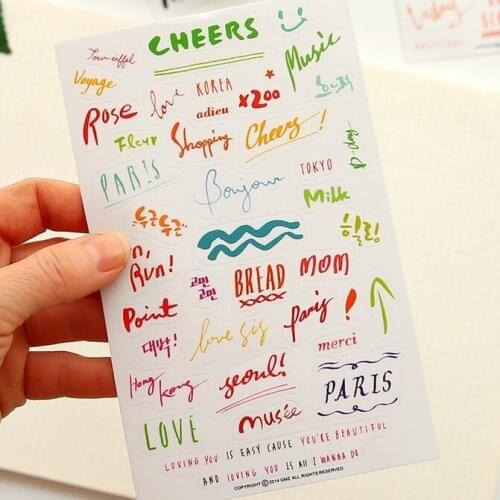 CHEERS
Tour eiffel
Voyage
Music
Rose
love
KOREA
adieu
x200
Fleur
Shopping
Cheers!
D-day
PARIS
Bonjour
TOKYO
Milk
두근두근
힐링!
Run!
고민
고민
BREAD
MOM
Point
대박!
love sis
paris!
merci
Hong
Kong
seoul!
PARIS
LOVE
musée
LOVING YOU IS EASY CAUSE YOU'RE BEAUTIFUL
AND LOVING YOU IS ALL I WANNA DO
COPYRIGHT ⓒ 2014 GMZ ALL RIGHTS RESERVED
today